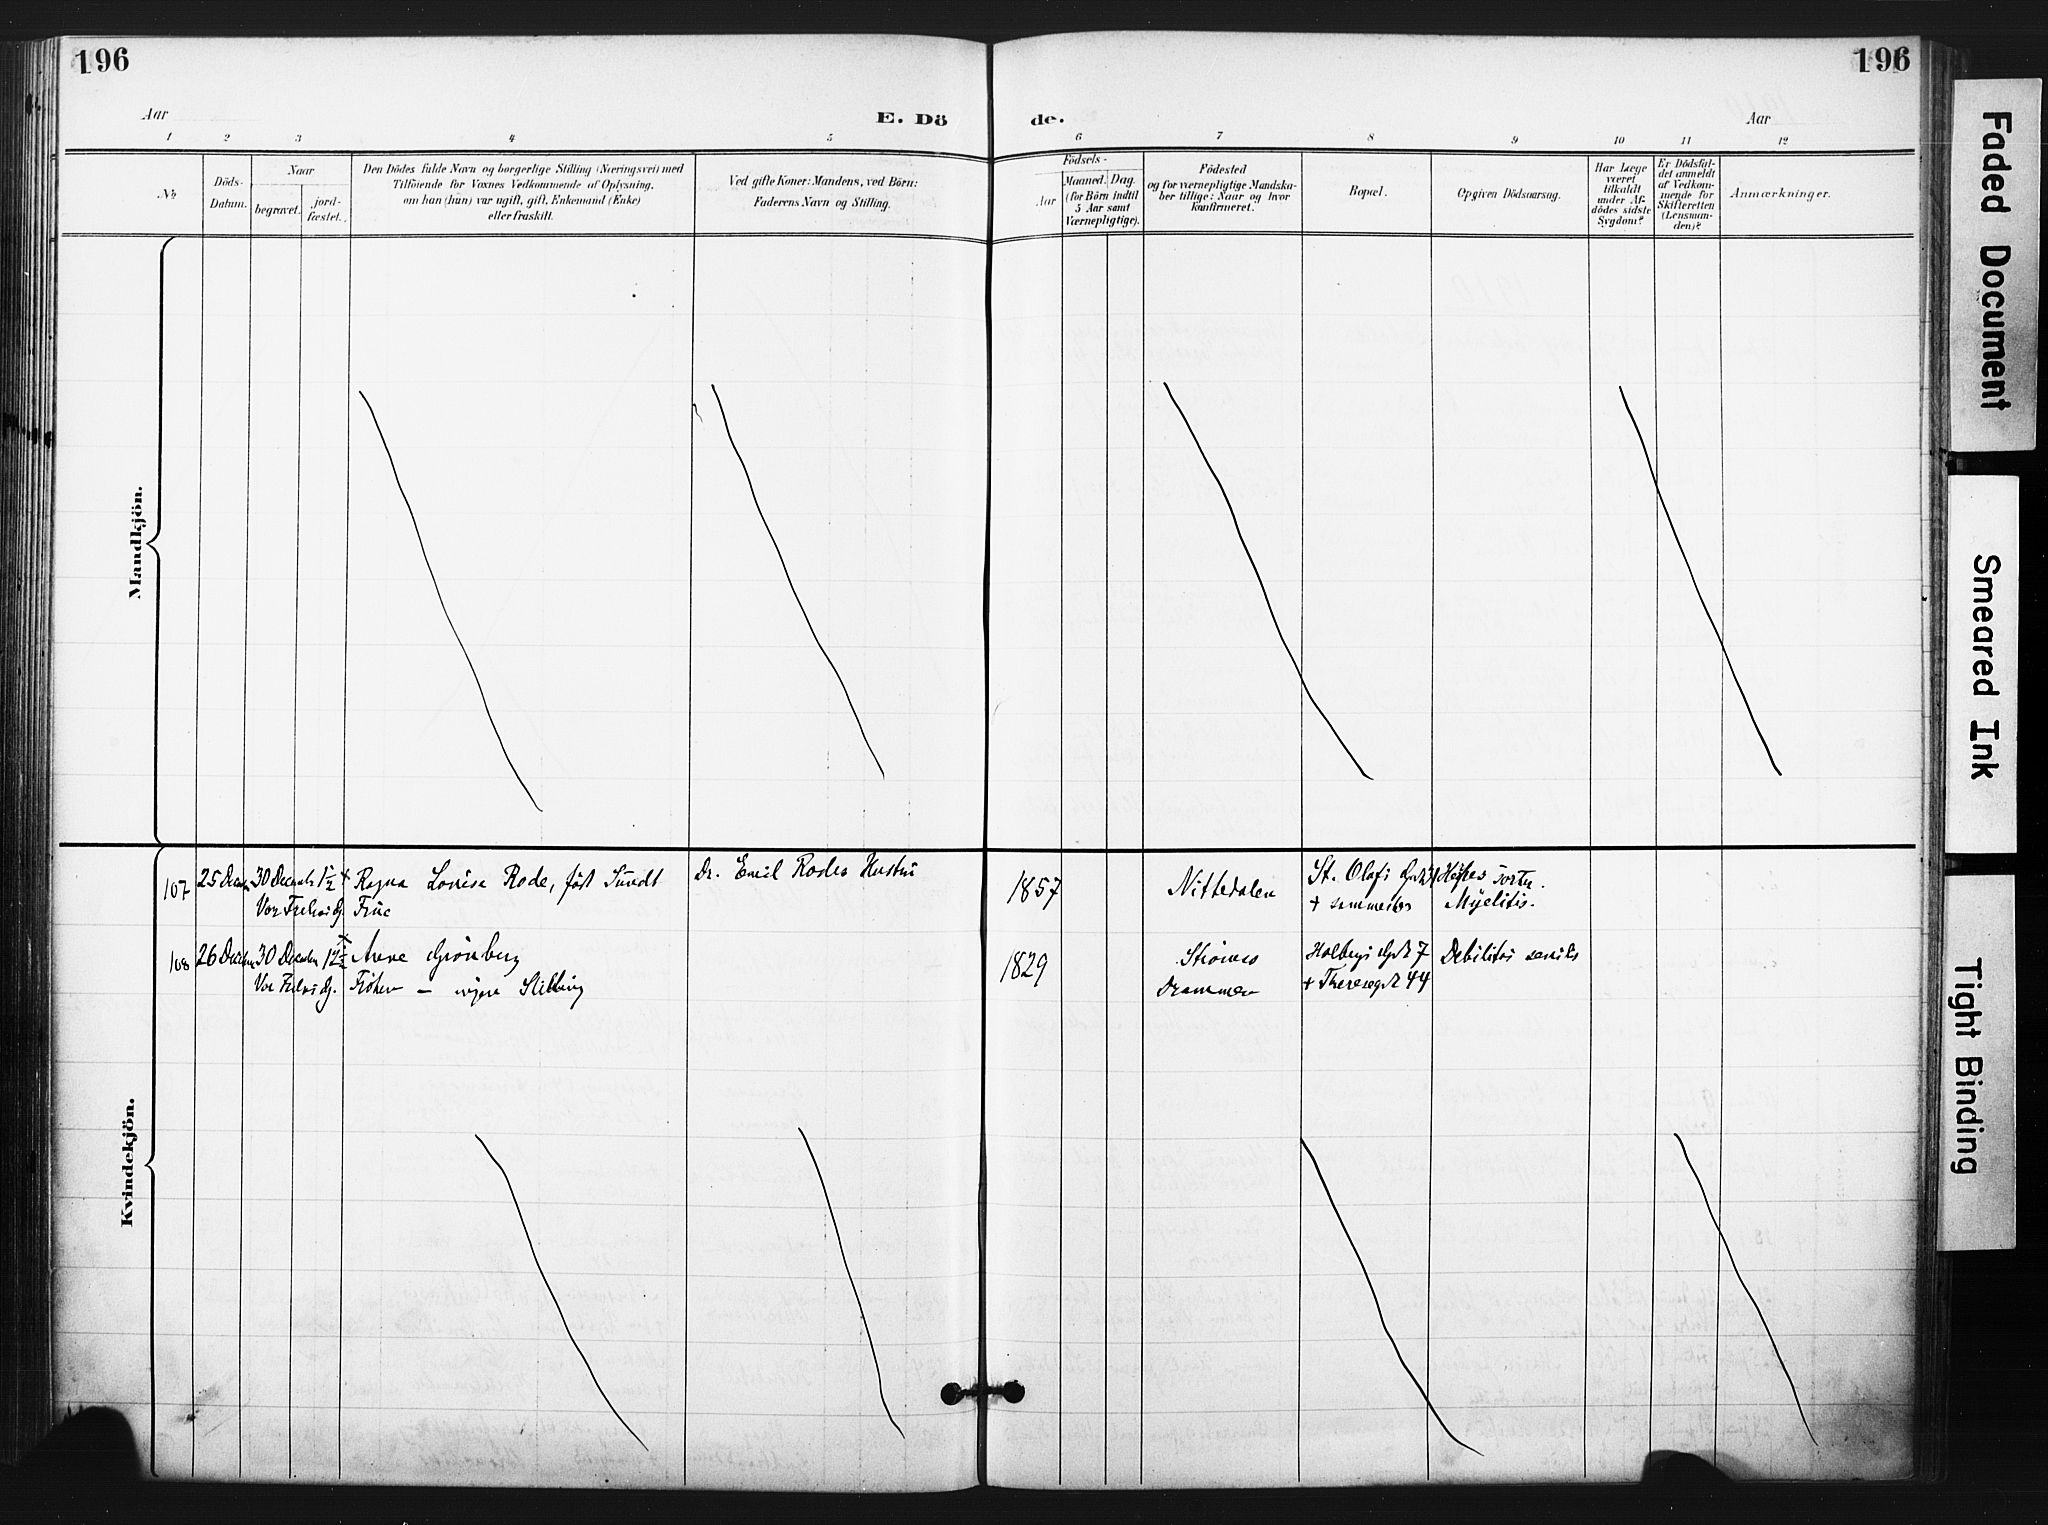 196
196
Aar
E. Dö
de.
Aar
1 2 3 4 5 6 7 8 9 10 11 12
No
Döds-
Datum.
Naar
begravet.
jord-
fæstet.
Den Dödes fulde Navn og borgerlige Stilling (Næringsvei) med
Tilföiende for Voxnes Vedkommende af Oplysning,
om han (hun) var ugift, gift, Enkemand (Enke)
eller fraskilt.
Ved gifte Koner: Mandens, ved Börn:
Faderens Navn og Stilling.
Födsels-
Aar
Maaned. Dag.
(for Börn indtil
5 Aar samt
Værnepligtige).
Födested
og for værnepligtige Mandska-
ber tillige: Naar og hvor
konfirmeret.
Bopæl.
Opgiven Dödsaarsag.
Har Læge
været
tilkaldt
under Af-
dödes sidste
Sygdom?
Er Dödsfal-
det anmeldt
af Vedkom-
mende for
Skifteretten
(Lensman-
den)?
Anmærkninger.
Mandkjön.
Kvindekjön.
107 25 Decbr 30 Decemb 1½ Ragna Lovise Rode, föd Sundt Dr. Emil Rodes Hustru 1857 Nittedalen St. Olafs
Vor Frelsers Frue + Myelitis.
108 26 Decbr 30 Decbr 12½ Anne Grönberg 1829 Strömsö Holbergs Gd. 7 Debilitas senilis
Vor Frelsers Fröken – ingen Stilling Drammen + Theresegd. 44
Faded Document
Smeared Ink
Tight Binding